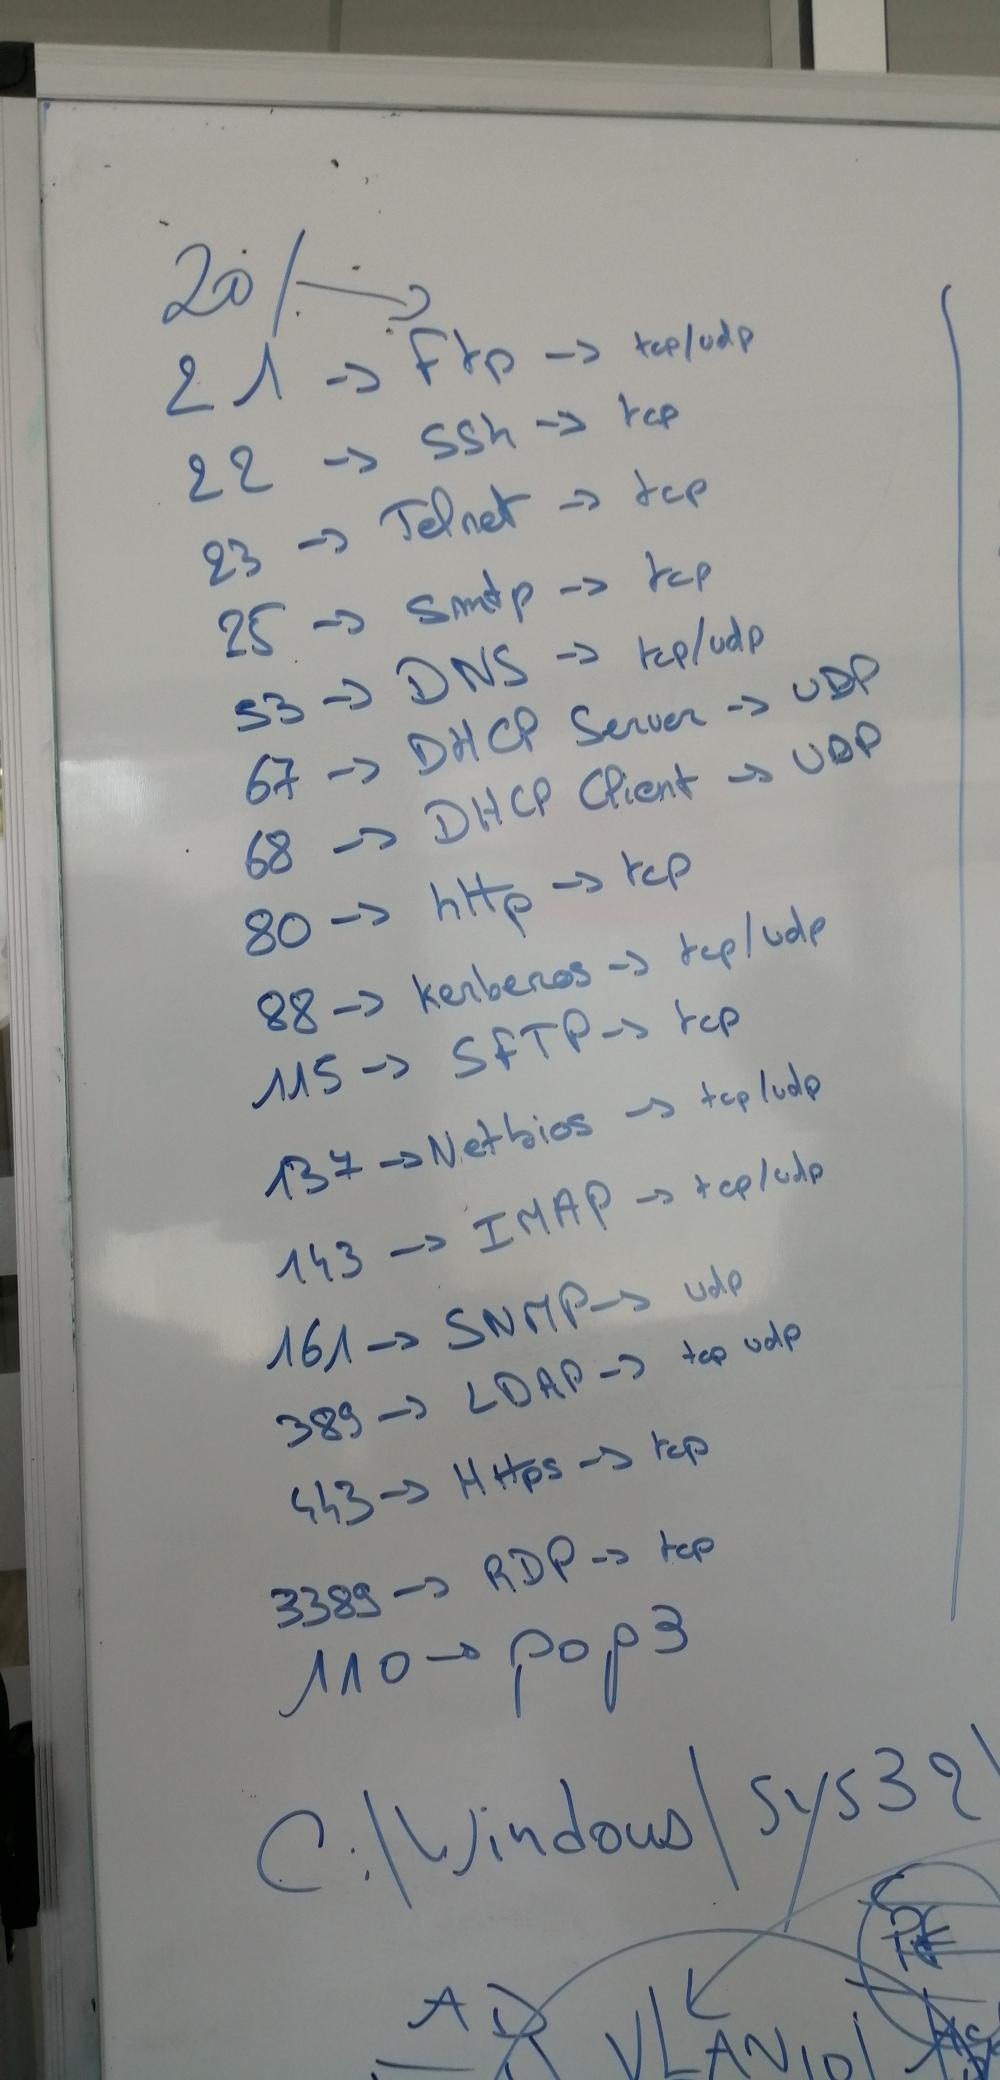 20/ →
21 → Ftp → tcp/udp
22 → SSh → tcp
23 → Telnet → tcp
25 → Smtp → tcp
53 → DNS → tcp/udp
67 → DHCP Server → UDP
68 → DHCP Client → UDP
80 → hHp → tcp
88 → kerberos → tcp/udp
115 → SFTP → tcp
137 → Netbios → tcp/udp
143 → IMAP → tcp/udp
161 → SNMP → udp
389 → LDAP → tcp udp
443 → HHps → tcp
3389 → RDP → tcp
110 → pop3
C:\Windows\Sys32\
AD VLAN101